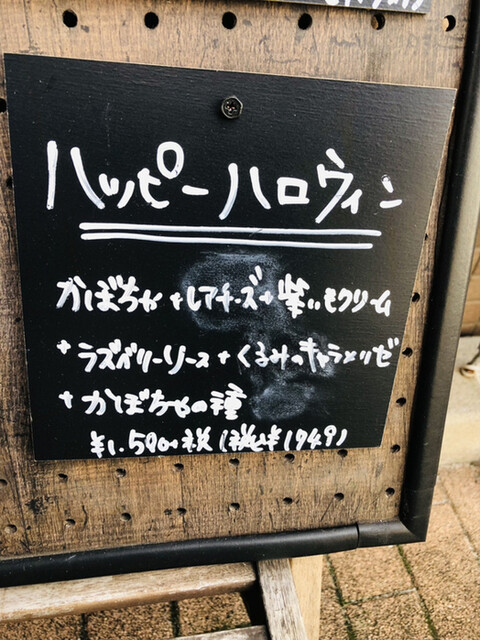 ハッピーハロウィン
かぼちゃ+レアチーズ+紫いもクリーム
+ラズベリーソース+くるみのキャラメリゼ
+かぼちゃの種